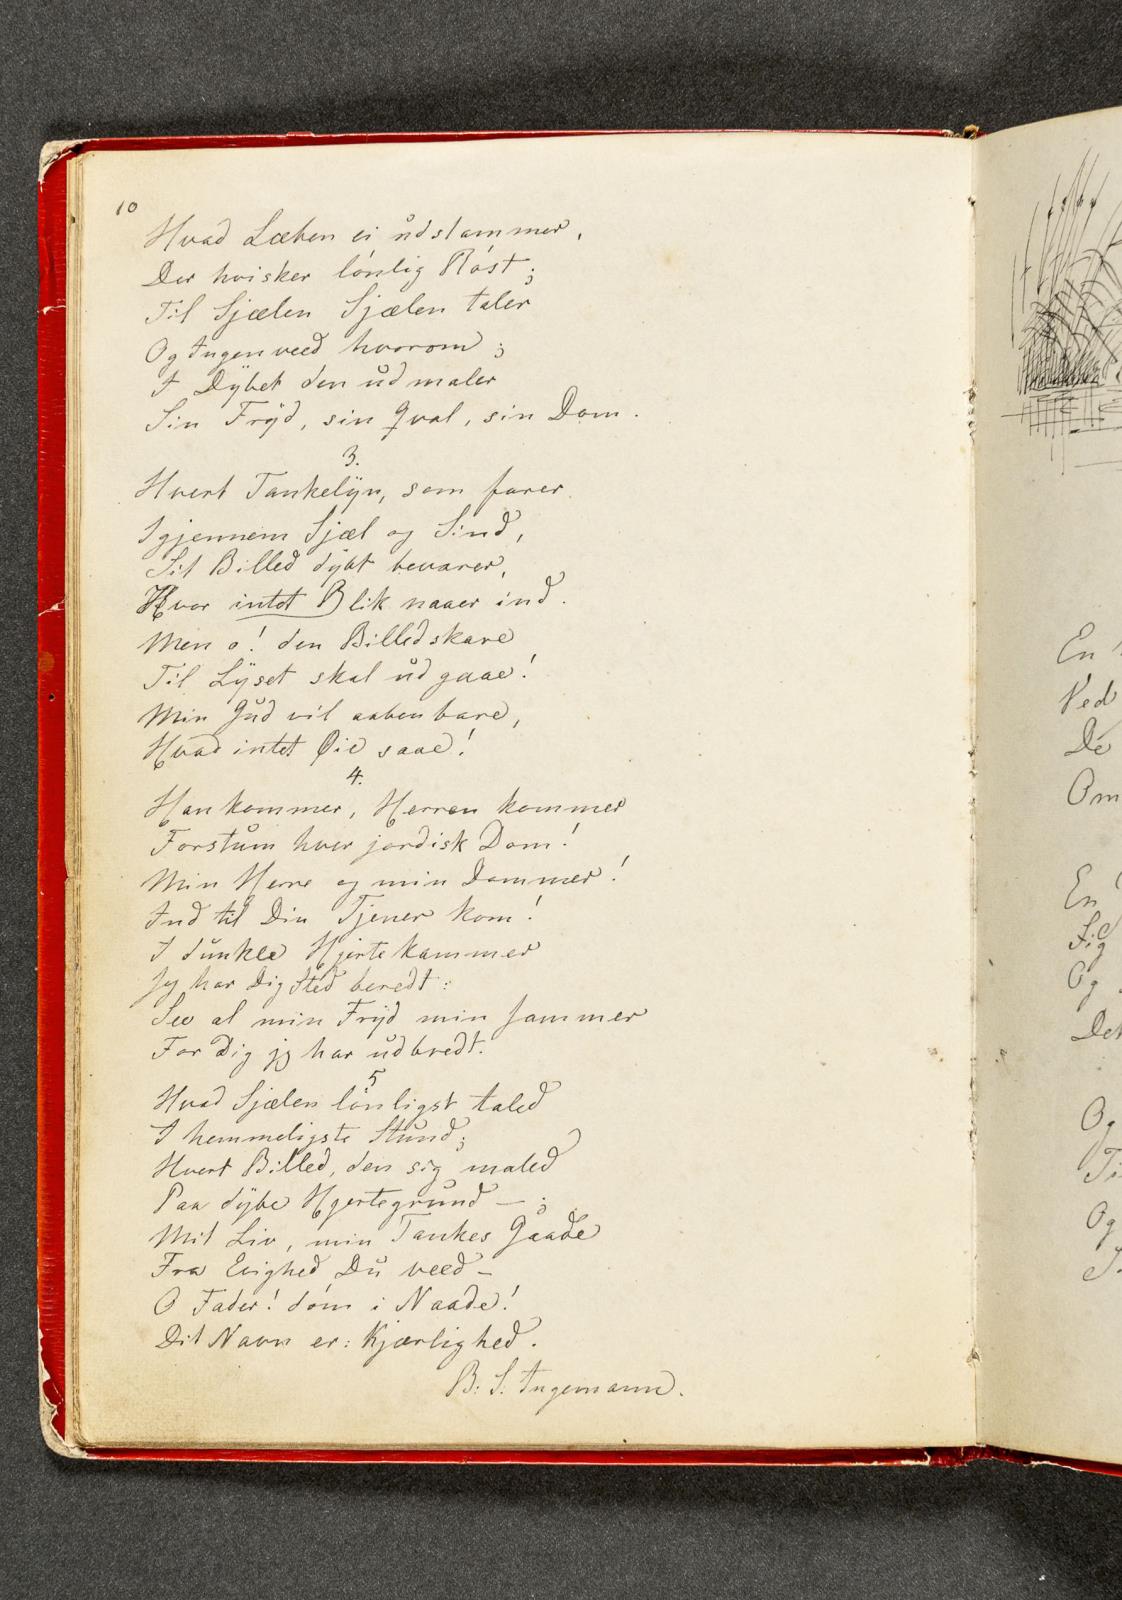 10
Hvad Læben ei udstammer,
Der hvisker lønlig Røst;
Til Sjælen Sjælen taler
Og Ingen veed hvorom;
I Dÿbet den udmaler
Sin Frÿd, sin Qval, sin Dom.
3.
Hvert Tankelÿn, som farer
Igjennem Sjæl og Sind,
Sit Billed dÿbt bevarer,
Hvor intet Blik naaer ind.
Men o! den Billedskare
Til Lÿset skal udgaae!
Min Gud vil aabenbare,
Hvad intet Øie saae!
4.
Han kommer, Herren kommer
Forstum hver jordisk Dom!
Min Herre og min Dommer!
Ind til Din Tjener kom!
I dunkle Hjertekammer
Jeg har Dig Sted beredt:
See al min Frÿd min Jammer
For Dig jeg har udbredt.
5
Hvad Sjælen lønligst taled
I hemmeligste Stund;
Hvert Billed, den sig maled
Paa dÿbe Hjertegrund – ;
Mit Liv, min Tankes Gaade
Fra Evighed Du veed –
O Fader! døm i Naade!
Dit Navn er: Kjærlighed.
B: S: Ingemann.
En
Ved
De
Om
En
Sig
Og
Det
Og
Ti
Og